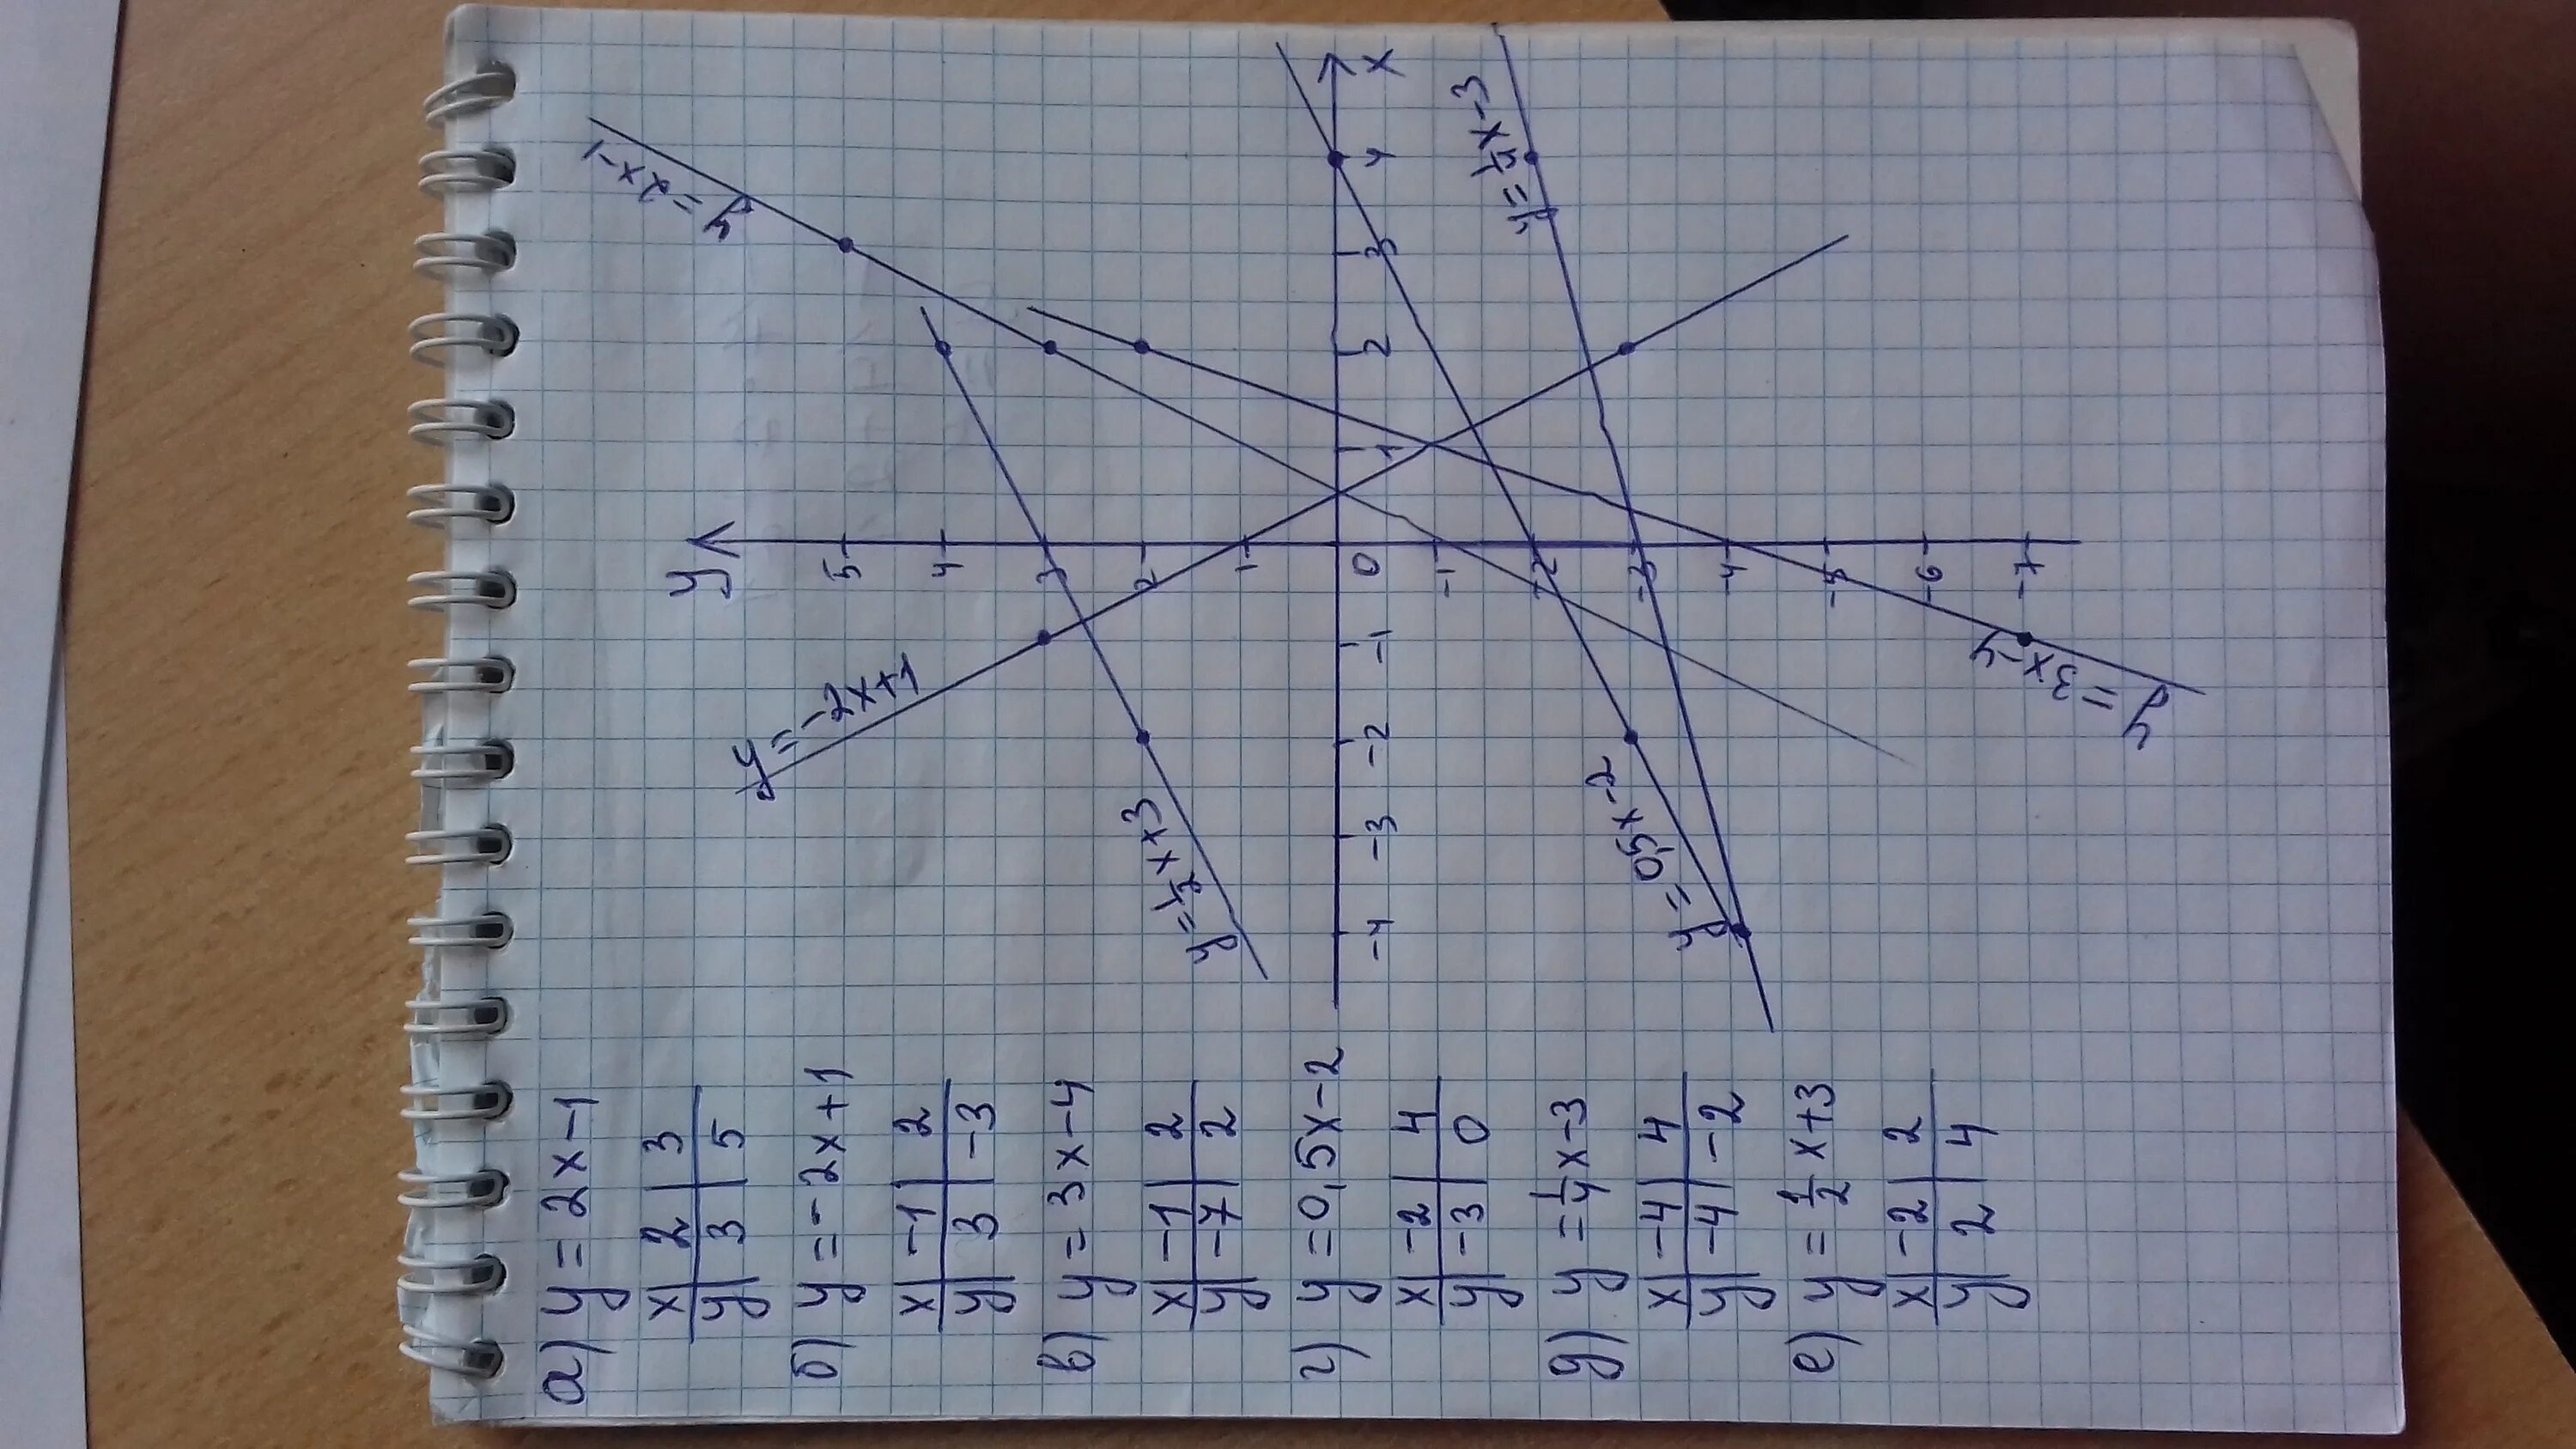 а) y = 2x-1
x | 2 | 3
y | 3 | 5
б) y = -2x+1
x | -1 | 2
y | 3 | -3
в) y = 3x-4
x | -1 | 2
y | -7 | 2
г) y = 0,5x-2
x | -2 | 4
y | -3 | 0
д) y = 1/4 x-3
x | -4 | 4
y | -4 | -2
е) y = 1/2 x+3
x | -2 | 2
y | 2 | 4
y
5
4
3
2
1
0
-1
-2
-3
-4
-5
-6
-7
-4 -3 -2 -1 1 2 3 4 x
y = -2x+1
y = 2x-1
y = 1/2 x+3
y = 0,5x-2
y = 1/4 x-3
y = 3x-4